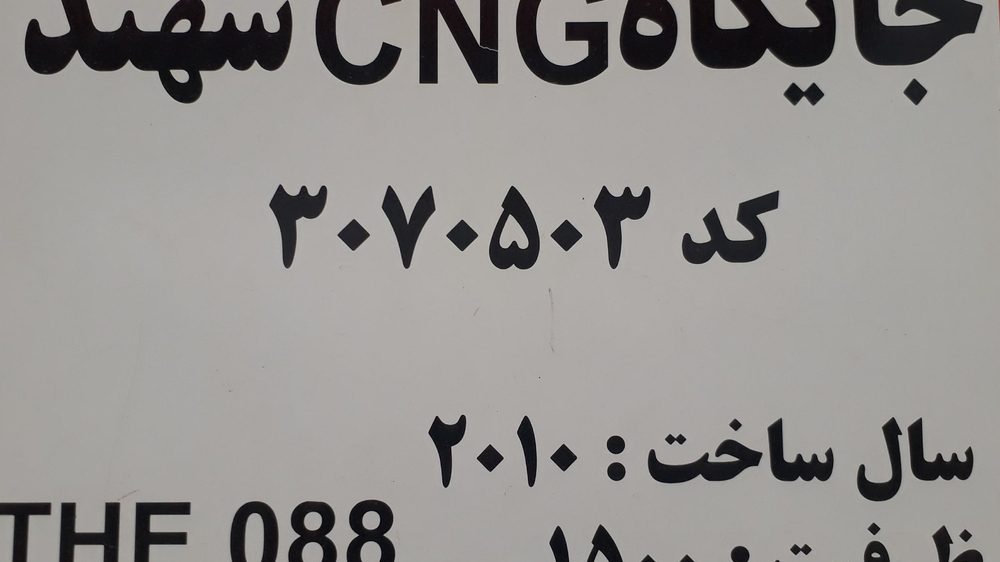 جایگاه CNG سهند
کد ۳۰۷۰۵۰۳
سال ساخت : ۲۰۱۰
ظرفیت : ۱۵۰۰
088